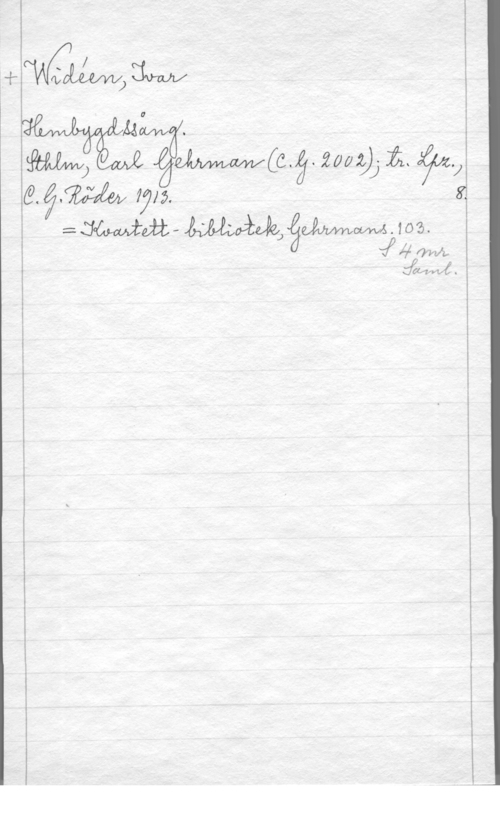 + Widéen, Ivar
Hembygdssång.
Sthlm, Carl Gehrman (C.G. 2002); tr. Lpz.,
C.G. Röder 1913. 8.
= Kvartett-bibliotek, Gehrmans. 103.
S 4 mr
Saml.